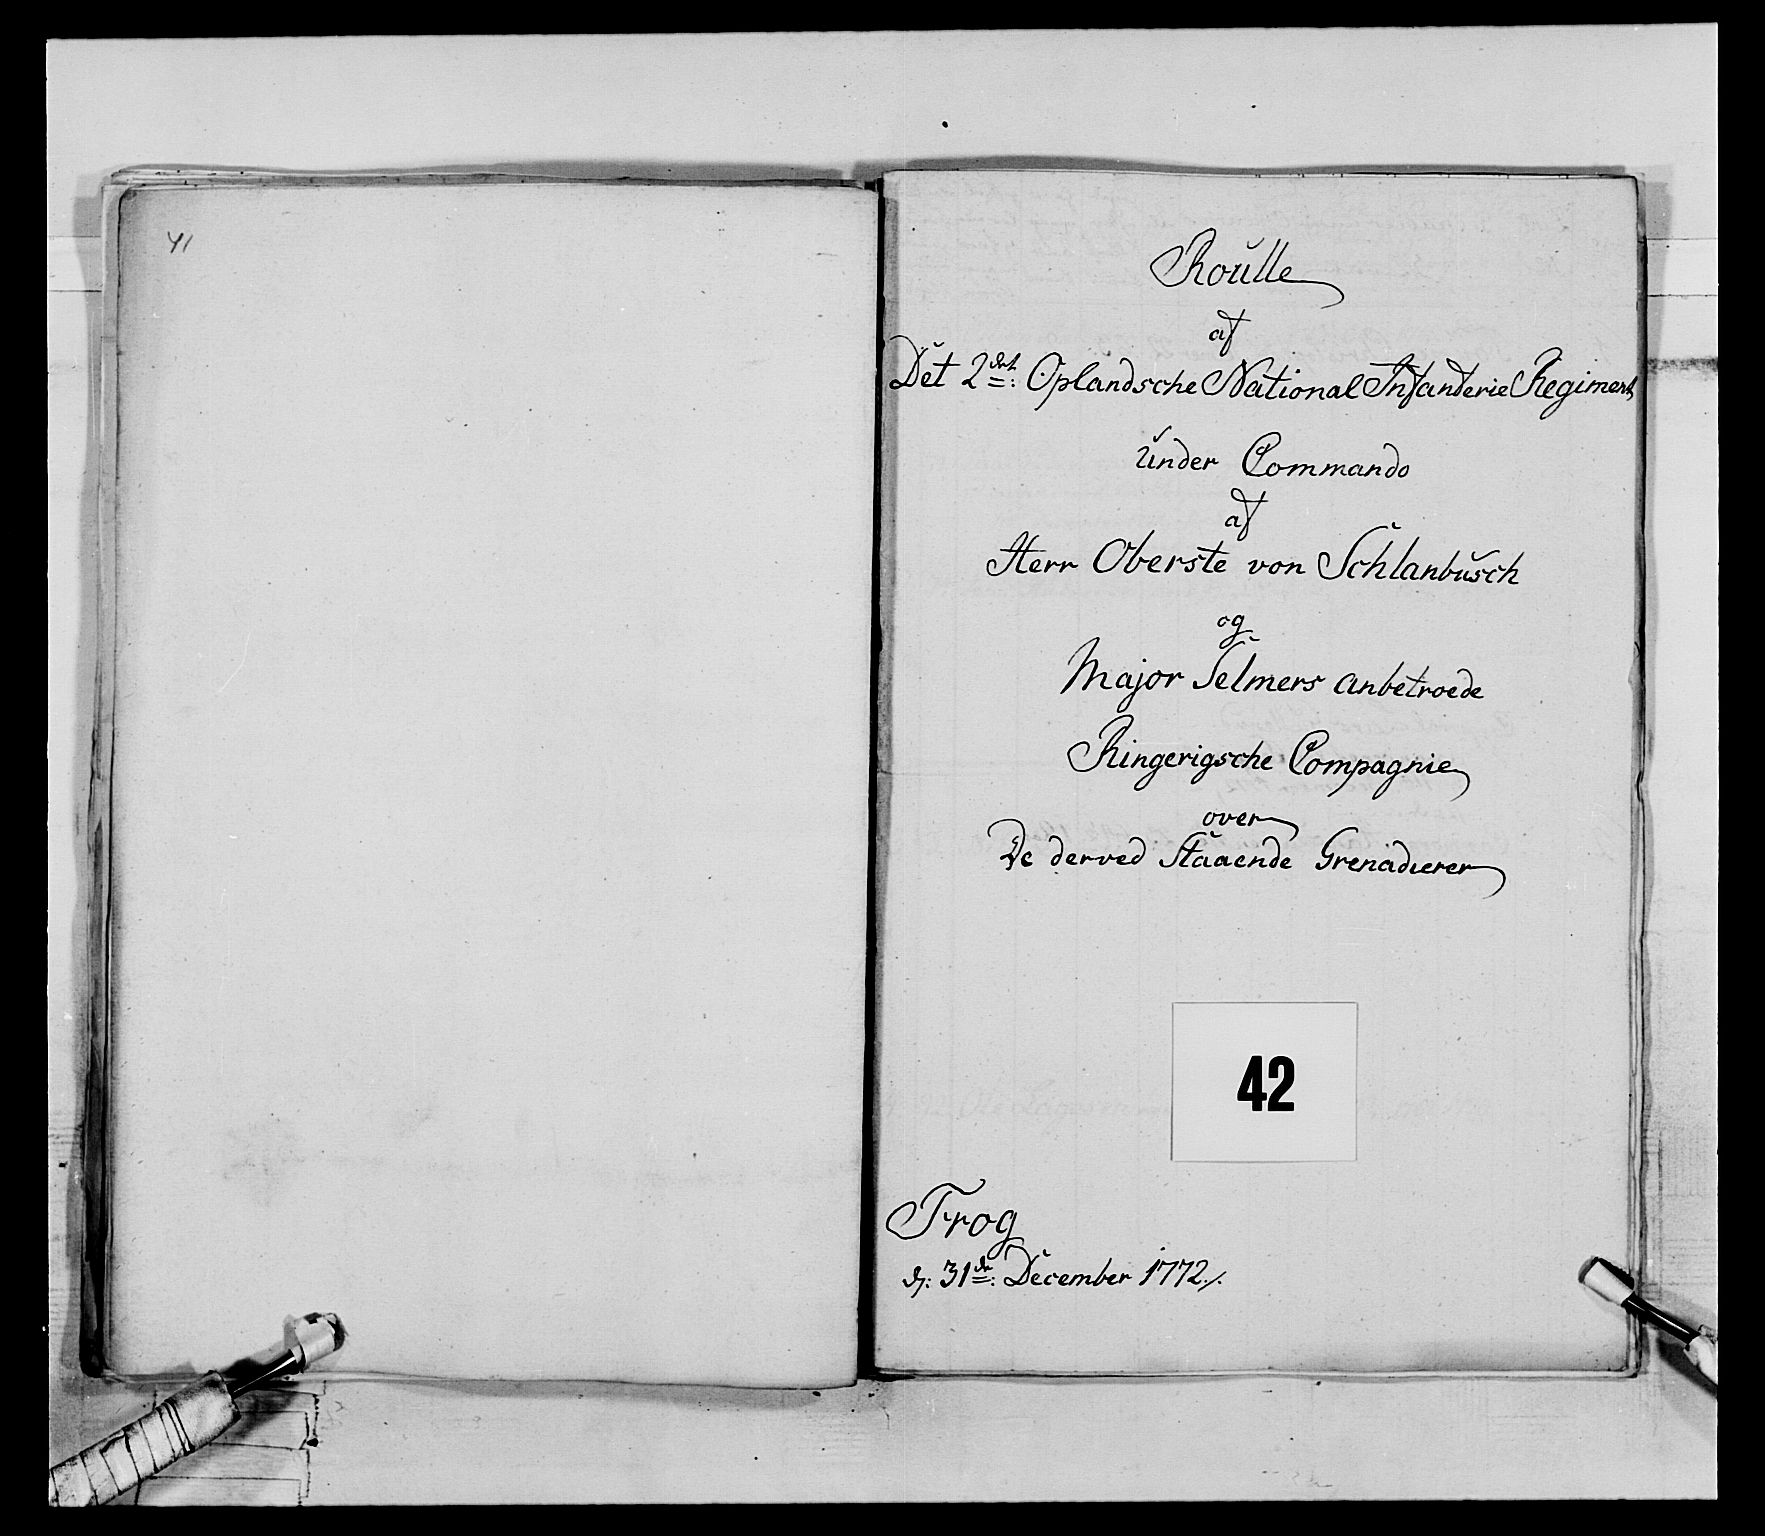 41
Roŭlle
af
Det 2det: Oplandsche National Infanterie Regiment
ŭnder Commando
af
Herr Oberste von Schlanbŭsch
og
Major Selmers anbetroede
Ringerigsche Compagnie
over
De derved Staaende Grenadierer
42
Frog
d: 31de: December 1772./.